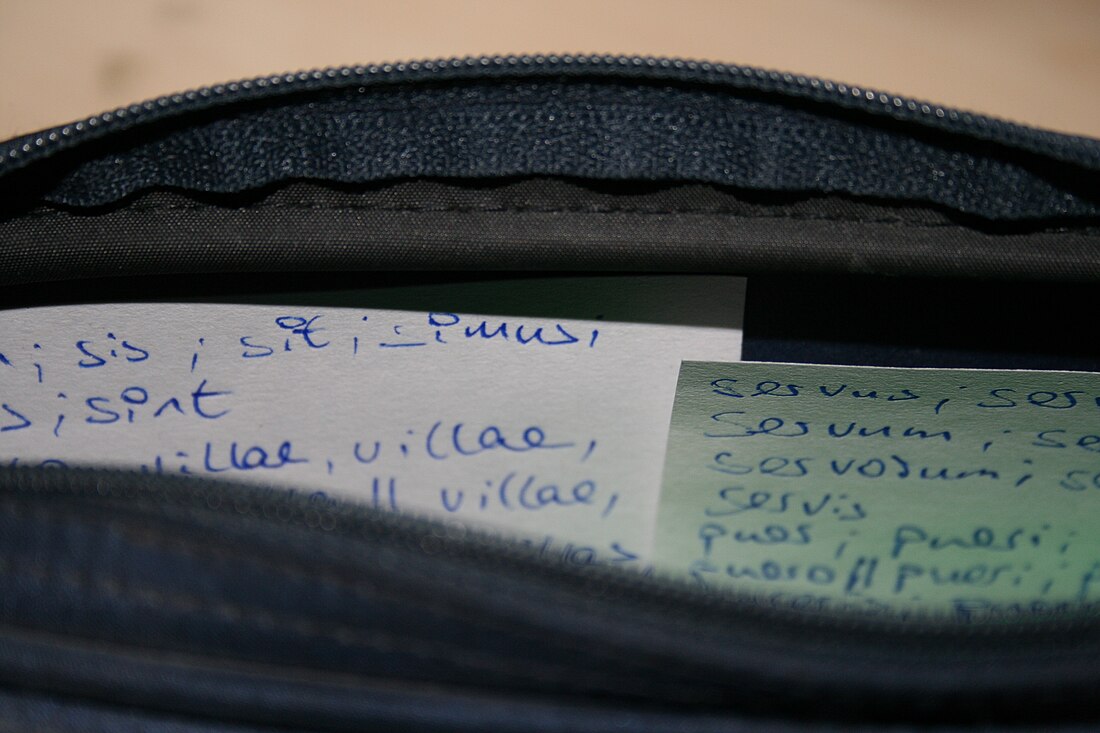 ; sis ; sit ; simus,
; sint
villae, villae,
|| villae,
servus ; ser
servum ; se
servorum ; s
servis
puer ; pueri ;
puero || pueri ;